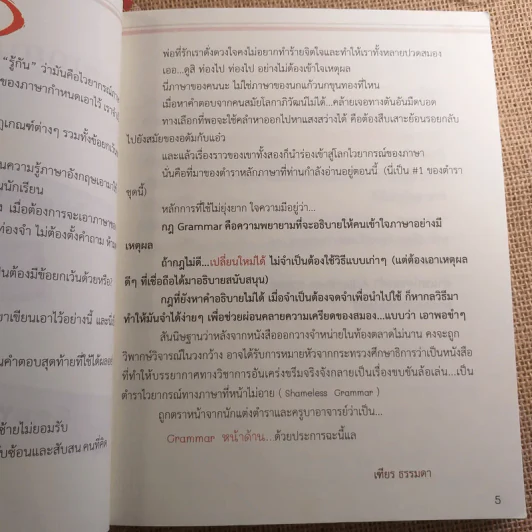 "รู้กัน" ว่ามันคือไวยากรณ์
ของภาษากำหนดเอาไว้
กฎเกณฑ์ต่างๆ รวมทั้งข้อยกเว้น
ความรู้ภาษาอังกฤษ
นักเรียน
เมื่อต้องการจะเอาภาษา
ท่องจำ ไม่ต้องตั้งคำถาม
ต้องมีข้อยกเว้นด้วยหรือ?
เขาเขียนเอาไว้อย่างนี้
คำตอบสุดท้ายที่ใช้ได้ผล
ซ้ายไม่ยอมรับ
ซับซ้อนและสับสน คนที่คิด
พ่อที่รักเราดั่งดวงใจคงไม่อยากทำร้ายจิตใจและทำให้เราทั้งหลายปวดสมอง
เออ...ดูสิ ท่องไป ท่องไป อย่างไม่ต้องเข้าใจเหตุผล
นี่ภาษาของคนนะ ไม่ใช่ภาษาของนกแก้วนกขุนทองที่ไหน
เมื่อหาคำตอบจากคนสมัยโลกาภิวัฒน์ไม่ได้...คล้ายเจอทางตันอันมืดบอด
ทางเลือกที่พอจะใช้คลำหาออกไปหาแสงสว่างได้ คือต้องสืบเสาะย้อนรอยกลับ
ไปยังสมัยของอดัมกับแอ๋ว
และแล้วเรื่องราวของเขาทั้งสองก็นำร่องเข้าสู่โลกไวยากรณ์ของภาษา
นั่นคือที่มาของตำราหลักภาษาที่ท่านกำลังอ่านอยู่ตอนนี้ (นี่เป็น #1 ของตำรา
ชุดนี้)
หลักการที่ใช้ไม่ยุ่งยาก ใจความมีอยู่ว่า...
กฎ Grammar คือความพยายามที่จะอธิบายให้คนเข้าใจภาษาอย่างมี
เหตุผล
ถ้ากฎไม่ดี...เปลี่ยนใหม่ได้ ไม่จำเป็นต้องใช้วิธีแบบเก่าๆ (แต่ต้องเอาเหตุผล
ดีๆ ที่เชื่อถือได้มาอธิบายสนับสนุน)
กฎที่ยังหาคำอธิบายไม่ได้ เมื่อจำเป็นต้องจดจำเพื่อนำไปใช้ ก็หากลวิธีมา
ทำให้มันจำได้ง่ายๆ เพื่อช่วยผ่อนคลายความเครียดของสมอง...แบบว่า เอาพอขำๆ
สันนิษฐานว่าหลังจากหนังสือออกวางจำหน่ายในท้องตลาดไม่นาน คงจะถูก
วิพากษ์วิจารณ์ในวงกว้าง อาจได้รับการหมายหัวจากกระทรวงศึกษาธิการว่าเป็นหนังสือ
ที่ทำให้บรรยากาศทางวิชาการอันเคร่งขรึมจริงจังกลายเป็นเรื่องขบขันล้อเล่น...เป็น
ตำราไวยากรณ์ทางภาษาที่หน้าไม่อาย ( Shameless Grammar )
ถูกตราหน้าจากนักแต่งตำราและครูบาอาจารย์ว่าเป็น...
Grammar หน้าด้าน...ด้วยประการฉะนี้แล
เฑียร ธรรมดา
5